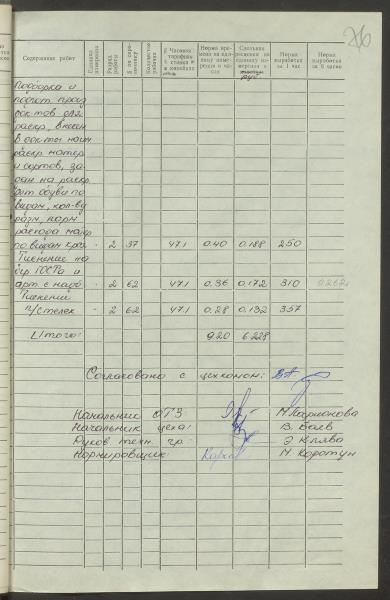 26
Содержание работ
Единица измерения
Разряд работы
№ по справочнику
Количество рабочих
Часовая тарифная ставка в копейках
Норма времени на единицу измерения в часах
Сдельная расценка на единицу измерения в руб
Норма выработки за 1 час
Норма выработки за 8 часов
Подборка и
подсчет
раскр, внесен
в док-ты наим
раскр матер
и сортов, за
дан на раскр
дет обуви по
видам, кол-ву
разм, норм
расхода матер
по видам - 2 37 47.1 0.40 0.188 2.50
Тиснение на
ГОСТа и
арт. с - 2 62 47.1 0.36 0.172 310
Тиснение
п/стелек - 2 62 47.1 0.28 0.132 3.57
Итого: 9.20 6.228
Согласовано с цехкомом:
Начальник ОТЗ М Ларионова
Начальник цеха: В. Баев
Руков техн. гр. Э Клява
Нормировщик: Н Коротун